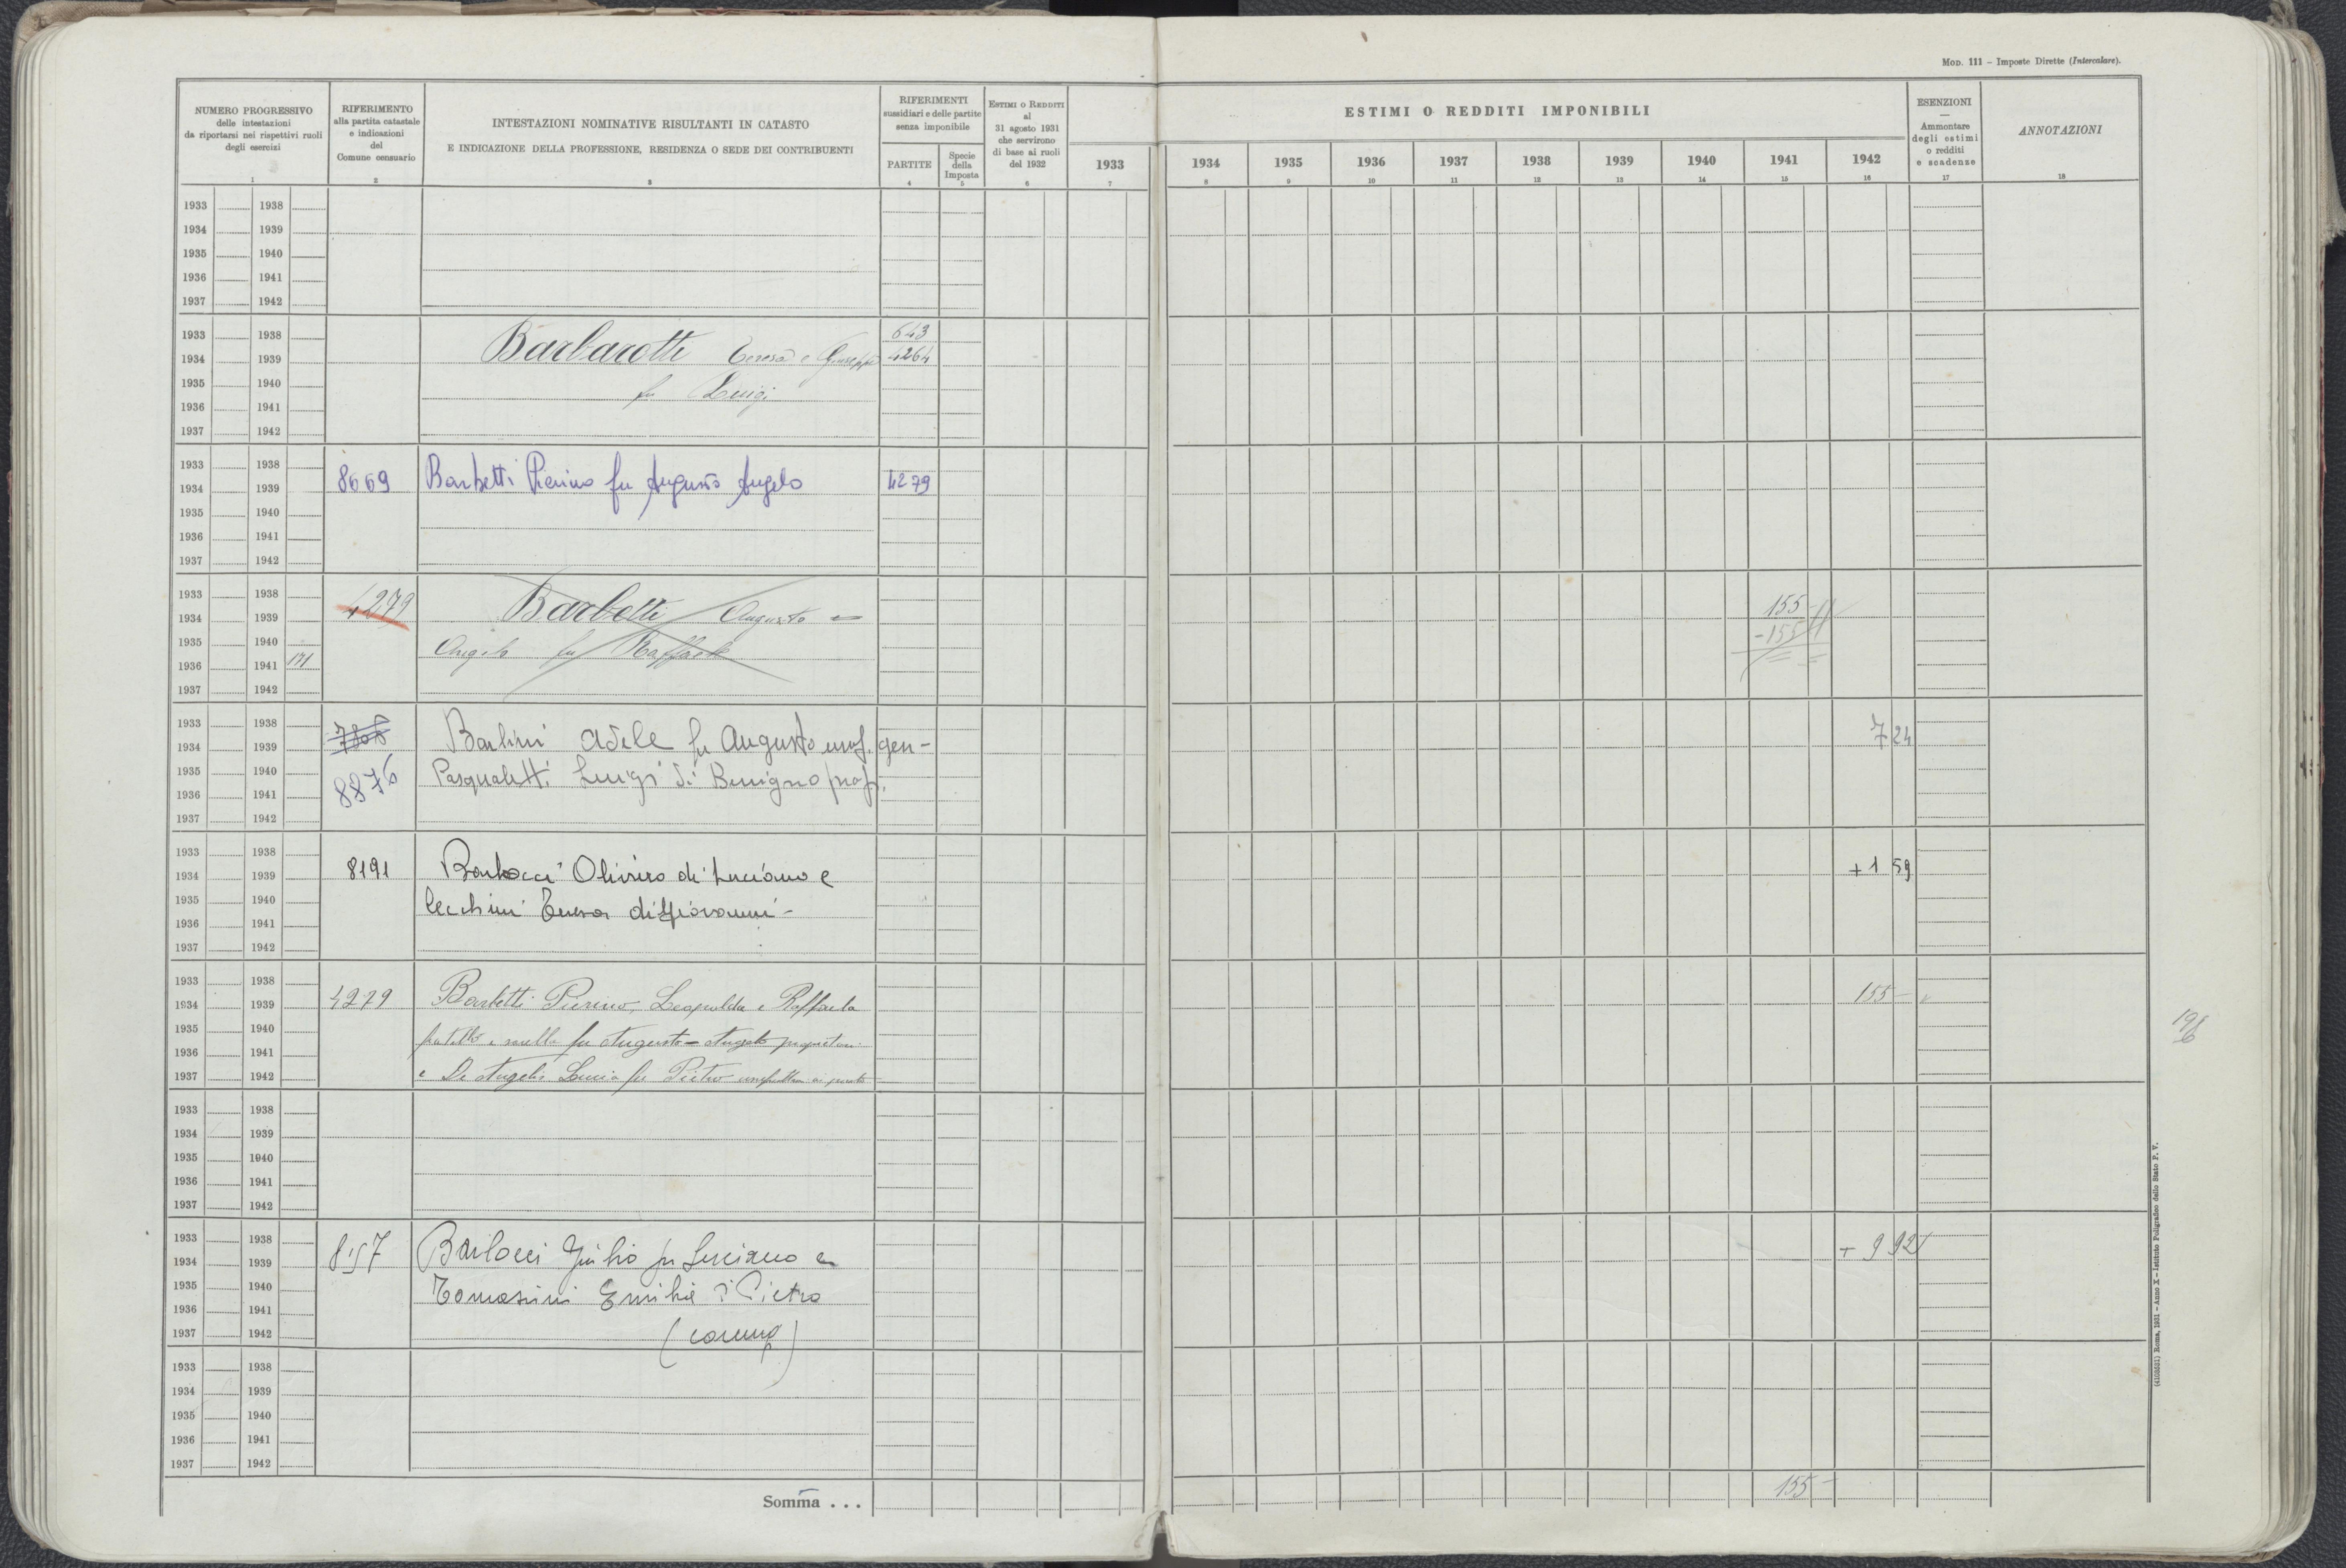 MOD. 111 – Imposte Dirette (Intercalare).
NUMERO PROGRESSIVO
delle intestazioni
da riportarsi nei rispettivi ruoli
degli esercizi
1
RIFERIMENTO
alla partita catastale
e indicazioni
del
Comune censuario
2
INTESTAZIONI NOMINATIVE RISULTANTI IN CATASTO
E INDICAZIONE DELLA PROFESSIONE, RESIDENZA O SEDE DEI CONTRIBUENTI
3
RIFERIMENTI
sussidiari e delle partite
senza imponibile
PARTITE
4
Specie
della
Imposta
5
ESTIMI O REDDITI
al
31 agosto 1931
che servirono
di base ai ruoli
del 1932
6
ESTIMI O REDDITI IMPONIBILI
1933 1934 1935 1936 1937 1938 1939 1940 1941 1942
7 8 9 10 11 12 13 14 15 16
ESENZIONI
—
Ammontare
degli estimi
o redditi
e scadenze
17
ANNOTAZIONI
18
1933 1938
1934 1939
1935 1940
1936 1941
1937 1942
1933 1938 643
1934 1939 Barbarotti Teresa e Giuseppe 4264
1935 1940 fu Luigi
1936 1941
1937 1942
1933 1938
1934 1939 8669 Barbetti Pierino fu Augusto Angelo 4279
1935 1940
1936 1941
1937 1942
1933 1938 4279 Barbetti Augusto = 155 -
1934 1939
1935 1940 Angelo fu Raffaele - 155
1936 1941 171
1937 1942
1933 1938 7808
1934 1939 Barlini Adele fu Augusto usuf. gen - 7 24
1935 1940 8876 Pasqualetti Luigi di Benigno prop.
1936 1941
1937 1942
1933 1938
1934 1939 8191 Barlocci Oliviero di Luciano e + 1 59
1935 1940 Cecchini Teresa di Giovanni -
1936 1941
1937 1942
1933 1938
1934 1939 4279 Barbetti Pierino, Leopolda e Raffaela 155 -
1935 1940
1936 1941 fratello e sorelle fu Augusto = Angelo proprietari
1937 1942 e De Angelis Lucia fu Pietro
196
1933 1938
1934 1939
1935 1940
1936 1941
1937 1942
1933 1938
1934 1939 Barlocci Giulio fu Luciano e + 9 92
1935 1940 Tomassini Emilia di Pietro
1936 1941
1937 1942
1933 1938
1934 1939
1935 1940
1936 1941
1937 1942
Somma . . . 155 -
Roma, 1931 – Anno X – Istituto Poligrafico dello Stato P. V.